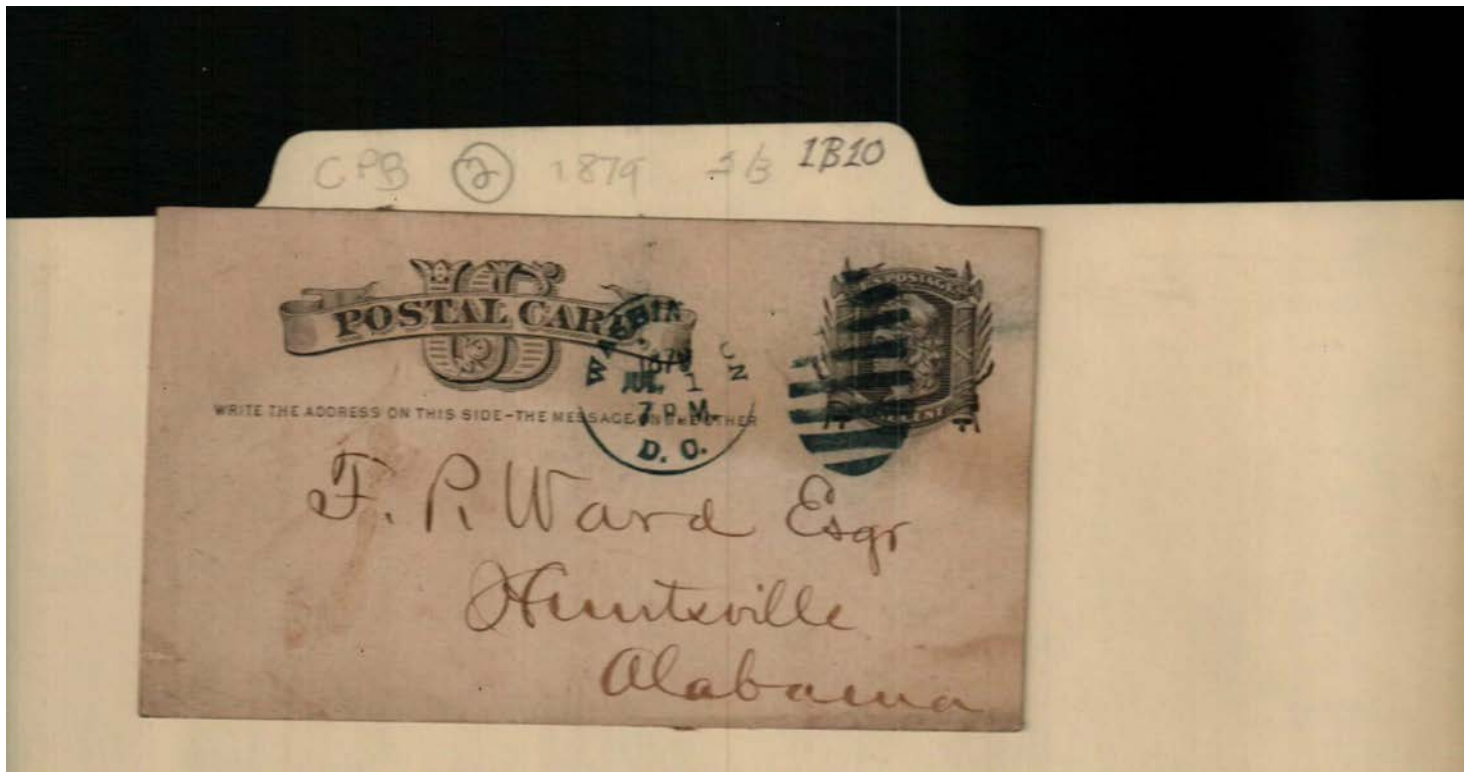 CPB 2 1879 1B10
US
POSTAL CARD
WRITE THE ADDRESS ON THIS SIDE-THE MESSAGE ON THE OTHER
WASHINGTON
1879
JUL 1
7 P.M.
D. C.
U.S. POSTAGE
ONE CENT
F. P. Ward Esqr
Huntsville
Alabama